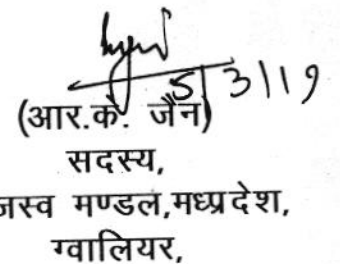 5/3/19
(आर.के. जैन)
सदस्य,
जस्व मण्डल,मध्यप्रदेश,
ग्वालियर,